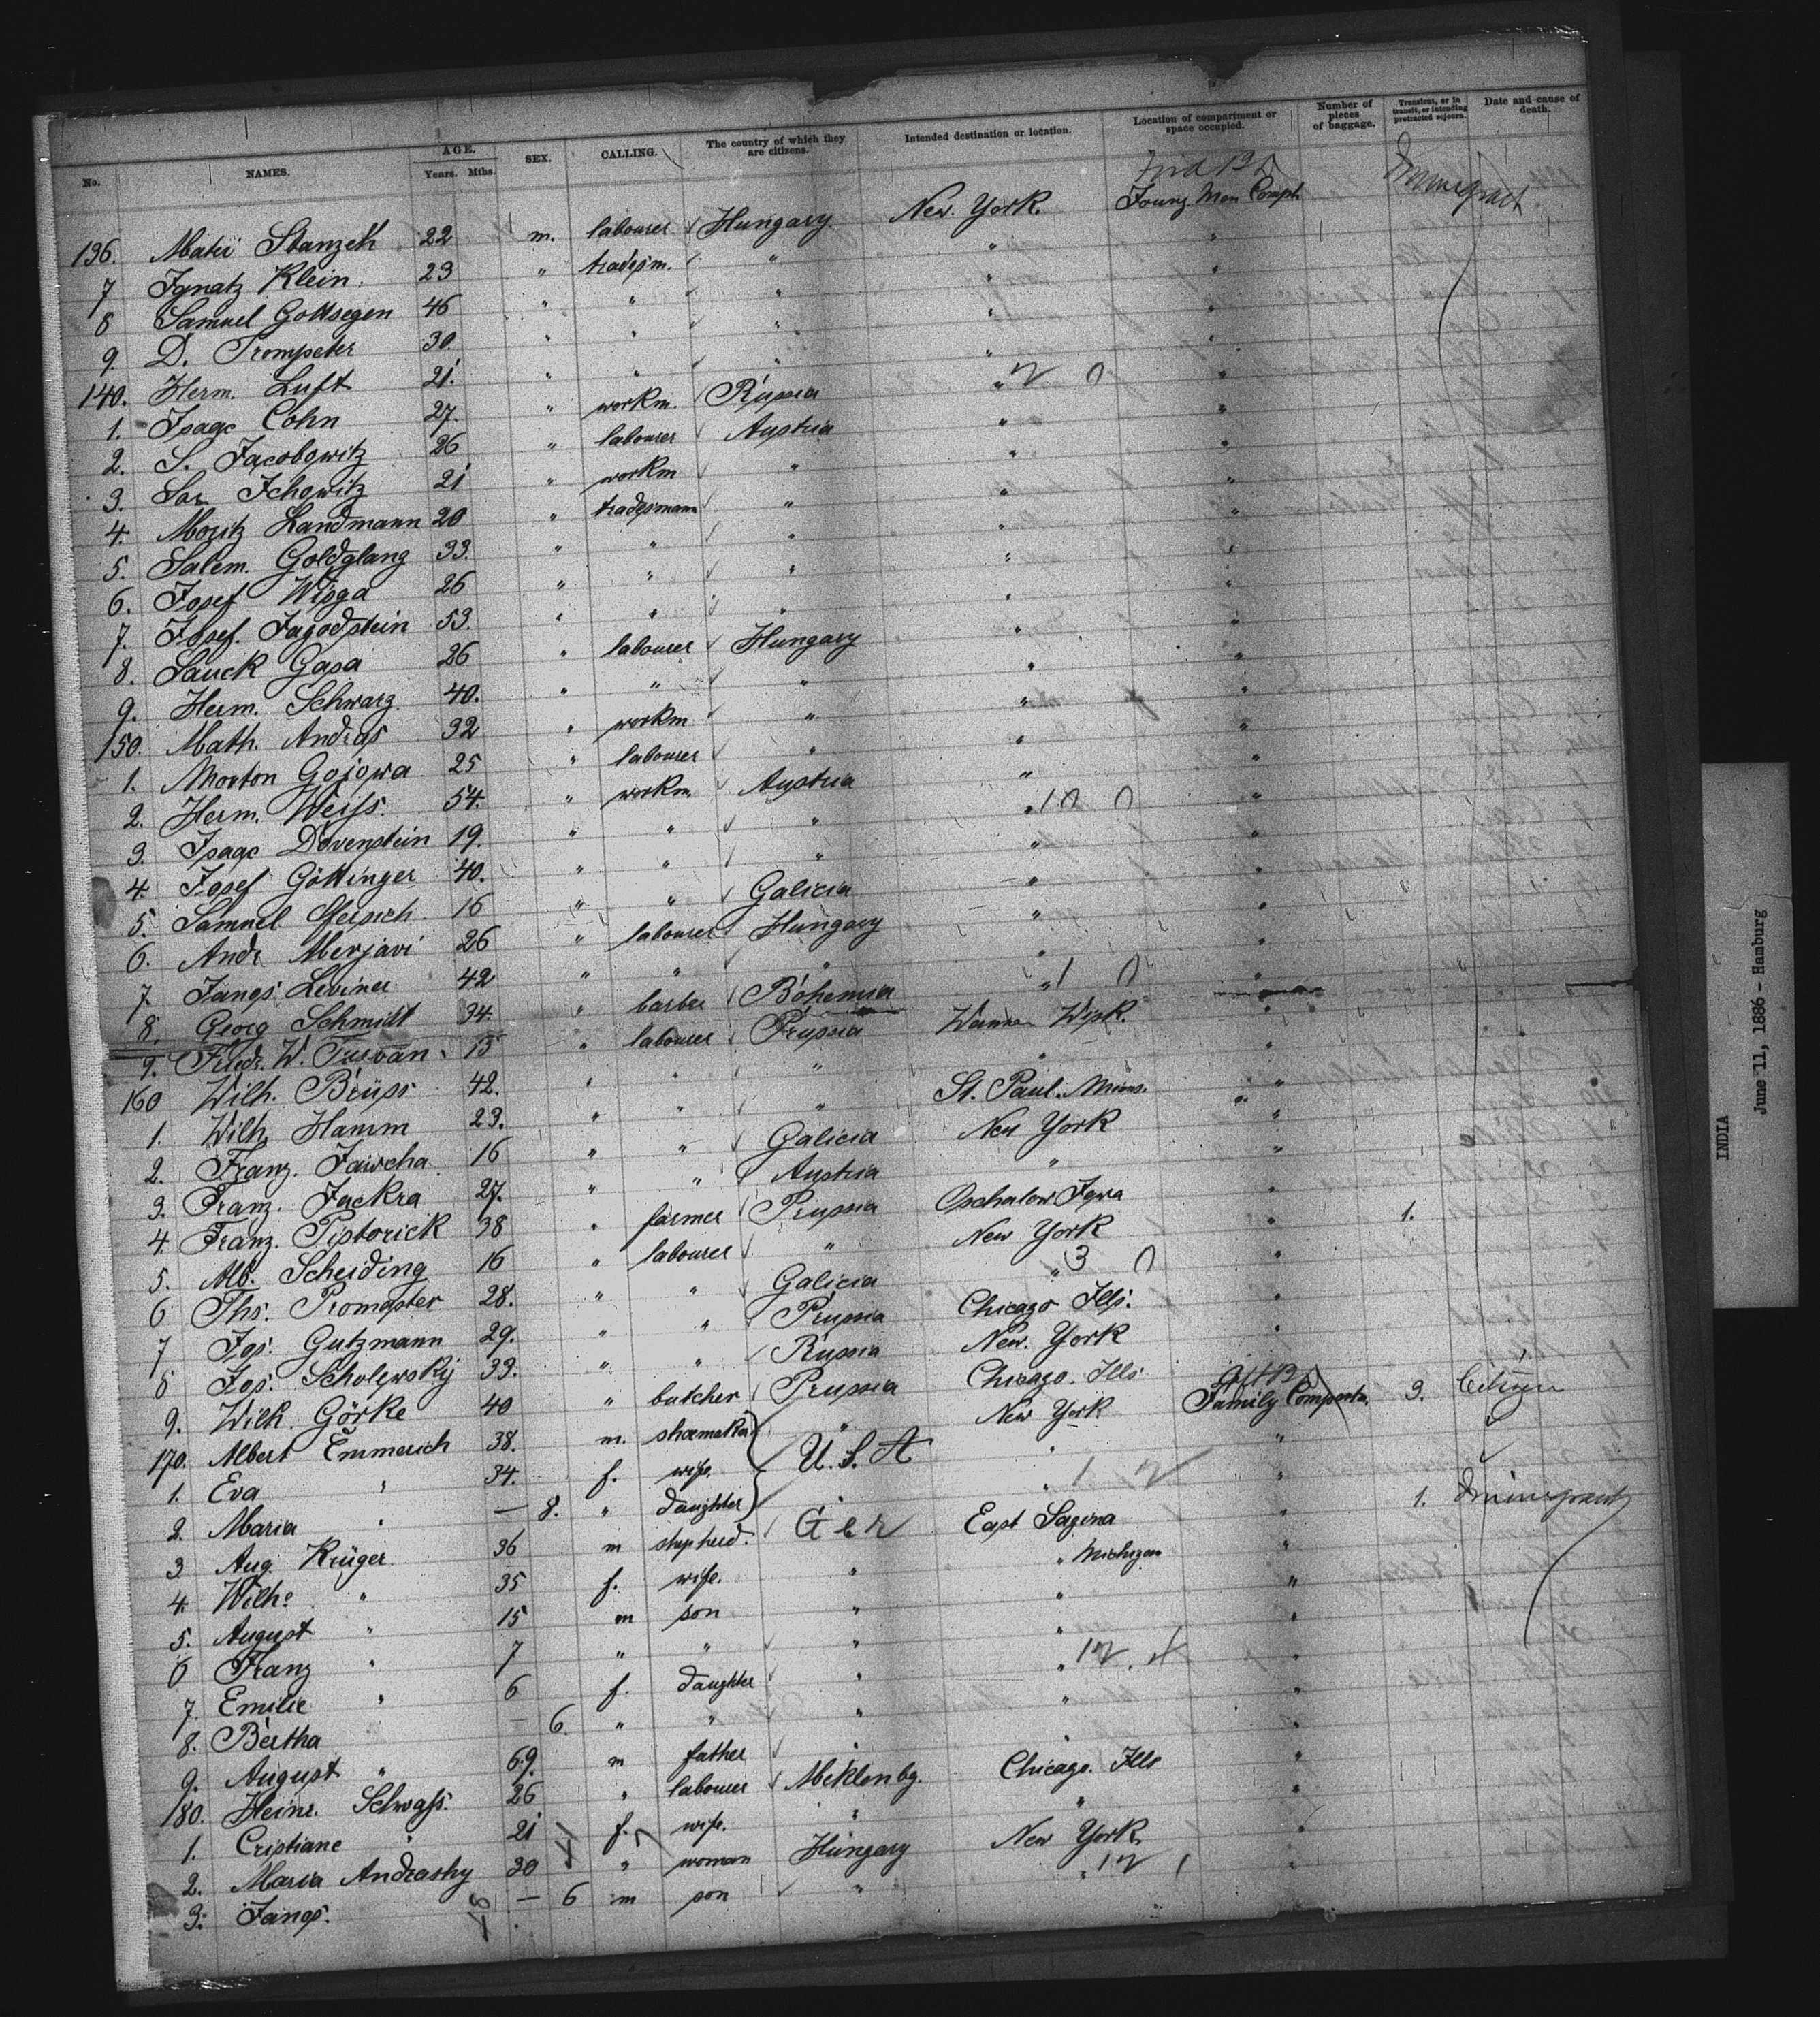 No. NAMES. AGE. Years. Mths. SEX. CALLING. The country of which they are citizens. Intended destination or location. Location of compartment or space occupied. Number of pieces of baggage. Transient, or in transit, or intending protracted sojourn. Date and cause of death.
136. Stanzek 22 m. labourer Hungary New York. Young Men Compt. Immigrant
7 Ignatz Klein 23 " tradesm. " " "
8 Samuel Gottsegen 46 " " " " "
9. D. Trompeter 30. " " " " "
140. Herm. Luft 21. " " " " "
1. Isaac Cohn 27. " workm. Russia " "
2. S. Jacobowitz 26 " labourer Austria " "
3. Sar Ichowitz 21 " workm " " "
4. Moritz Landmann 20 " tradesmann " " "
5. Salem. Goldglang 33. " " " " "
6. Josef Wisga 26 " " " " "
7. Josef. Jagodstein 53. " " " " "
8. Sauck Gasa 26 " labourer Hungary " "
9. Herm. Schwarz 40. " " " " "
150. Math. Andras 32 " workm " " "
1. Morton Gojowa 25 " labourer " " "
2. Herm. Weiss. 54. " workm. Austria " "
3. Isaac Dovenstein 19. " " " " "
4. Josef Göttinger 40. " " " " "
5. Samuel 16 " " Galicia " "
6. Andr Merjavi 26 " labourer Hungary " "
7 Leviner 42 " " " " "
8. Georg Schmidt 34. " barber Bohemia " "
9. Friedr. W. 15 " labourer Prussia Wisk. "
160 Wilh. Brüss 42. " " " " "
1. Wilh. Hamm 23. " " " St. Paul. Minns. "
2. Franz. Jawcha 16 " " Galicia New York "
3. Franz. Jackra 27. " " Austria " "
4. Franz. Pistorick 38 " farmer Prussia Iowa " 1.
5. Alb. Scheiding 16 " labourer " New York "
6 Ths. Promester 28. " " Galicia " 3 "
7 Jos. Gutzmann 29. " " Prussia Chicago Ills. "
8 Jos. Scholewsky 33. " " Russia New. York "
9. Wilh. Görke 40 " butcher Prussia Chicago. Ills
170. Albert Emmerich 38. m. shoemaker " New York Family Compartm. 3. Citizen
1. Eva " 34. f. wife. U. S. A " "
2. Maria " — 8. " daughter " "
3 Aug. Krüger 36 m shepherd. Ger East Sagina " 1. Immigrant
4. Wilhe " 35 f. wife. " " Michigan "
5. August " 15 m son " " "
6 Franz " 7 " " " " "
7. Emilie " 6 f. daughter " " "
8. Bertha — 6. " " " " "
9. August " 69. m father " " "
180. Heinr. Schwass. 26 " labourer Meklenbg. Chicago. Ills "
1. Cristiane " 21 f. wife. " " "
2. Maria Andrashy 20 " woman Hungary New York. "
3. — 6 m son " " "
INDIA
June 11, 1886 - Hamburg